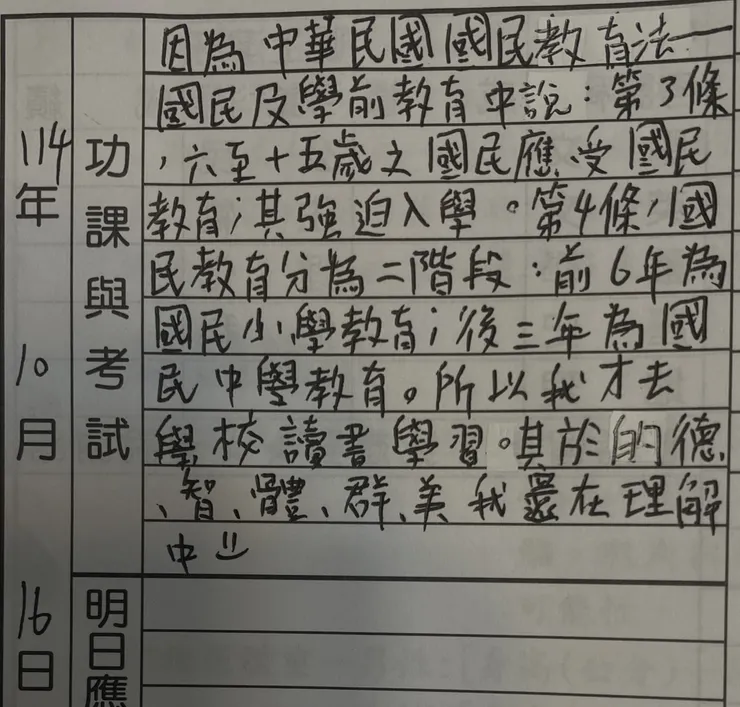 因為中華民國國民教育法——
國民及學前教育中說:第3條
,六至十五歲之國民應受國民
教育;其強迫入學。第4條,國
民教育分為二階段:前6年為
國民小學教育;後三年為國
民中學教育。所以我才去
學校讀書學習。其於的德
、智、體、群、美我還在理解
中
功課與考試
明日應
114年10月16日